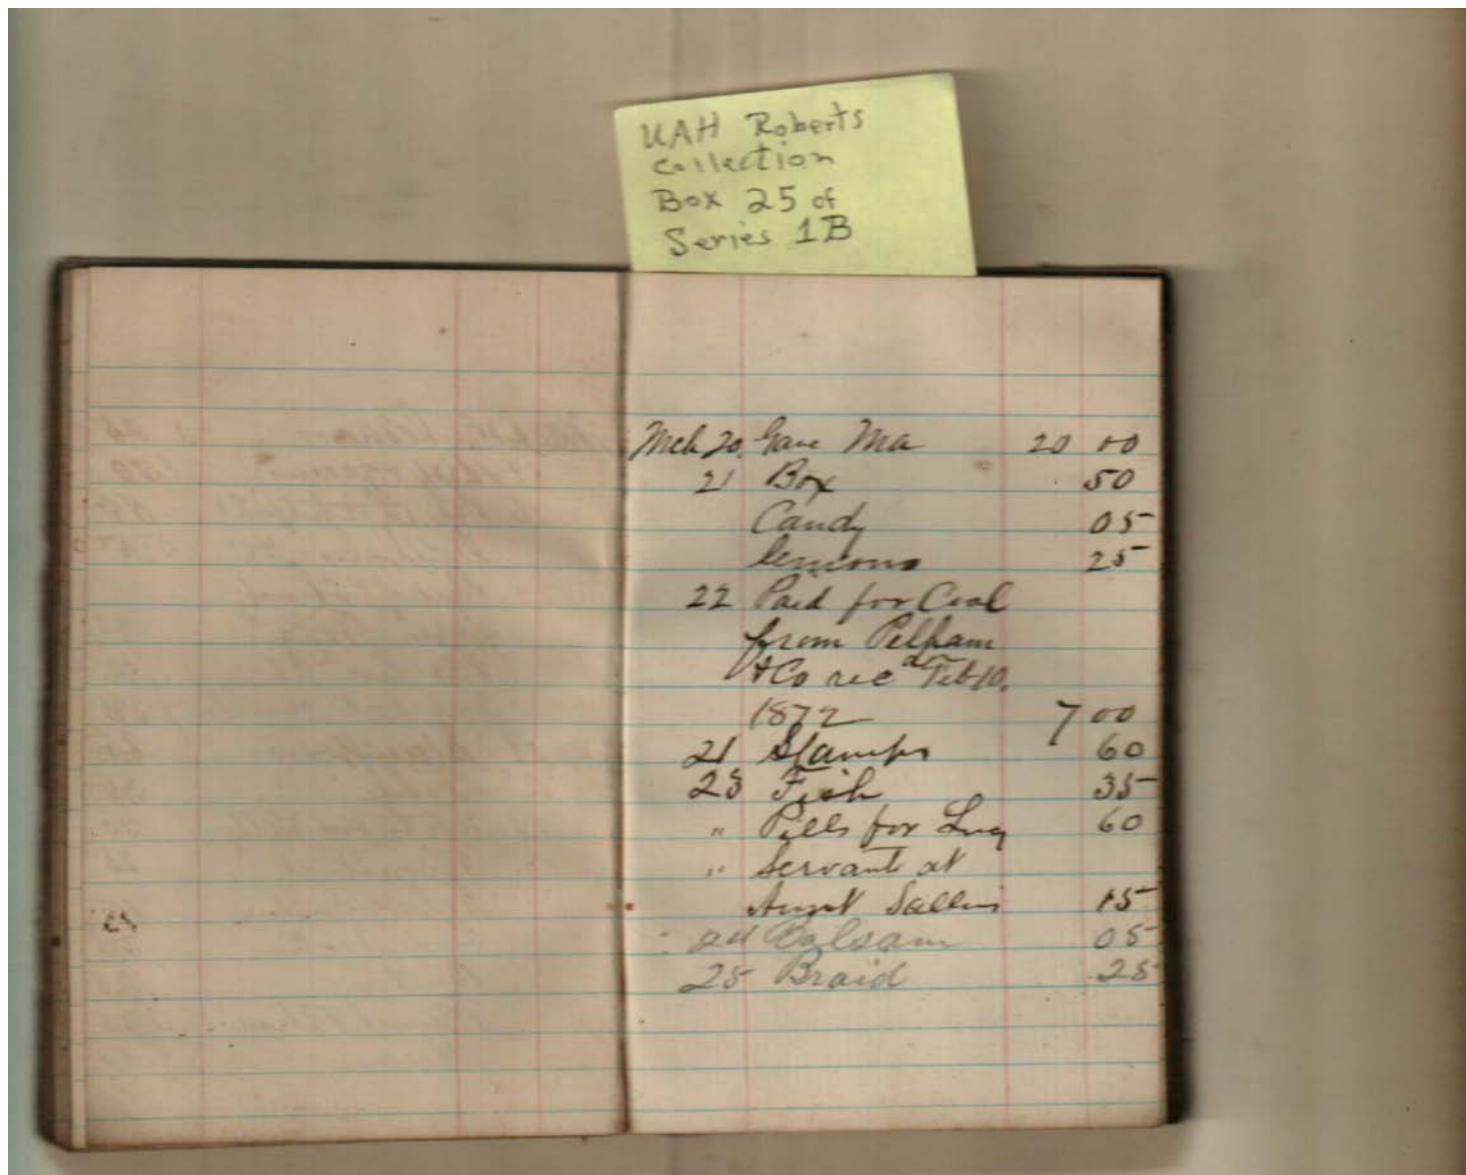 UAH Roberts
Collection
Box 25 of
Series 1B
Mch 20. Gave Ma 20 00
21 Box 50
Candy 05
lemons 25
22 Paid for Coal
from Pelham
& Co rec on Feb 10.
1872 7 00
21 Stamps 60
23 Fish 35
" Pills for Lucy 60
" Servant at
Aunt Sallies 15
24 Balsam 05
25 Braid 25